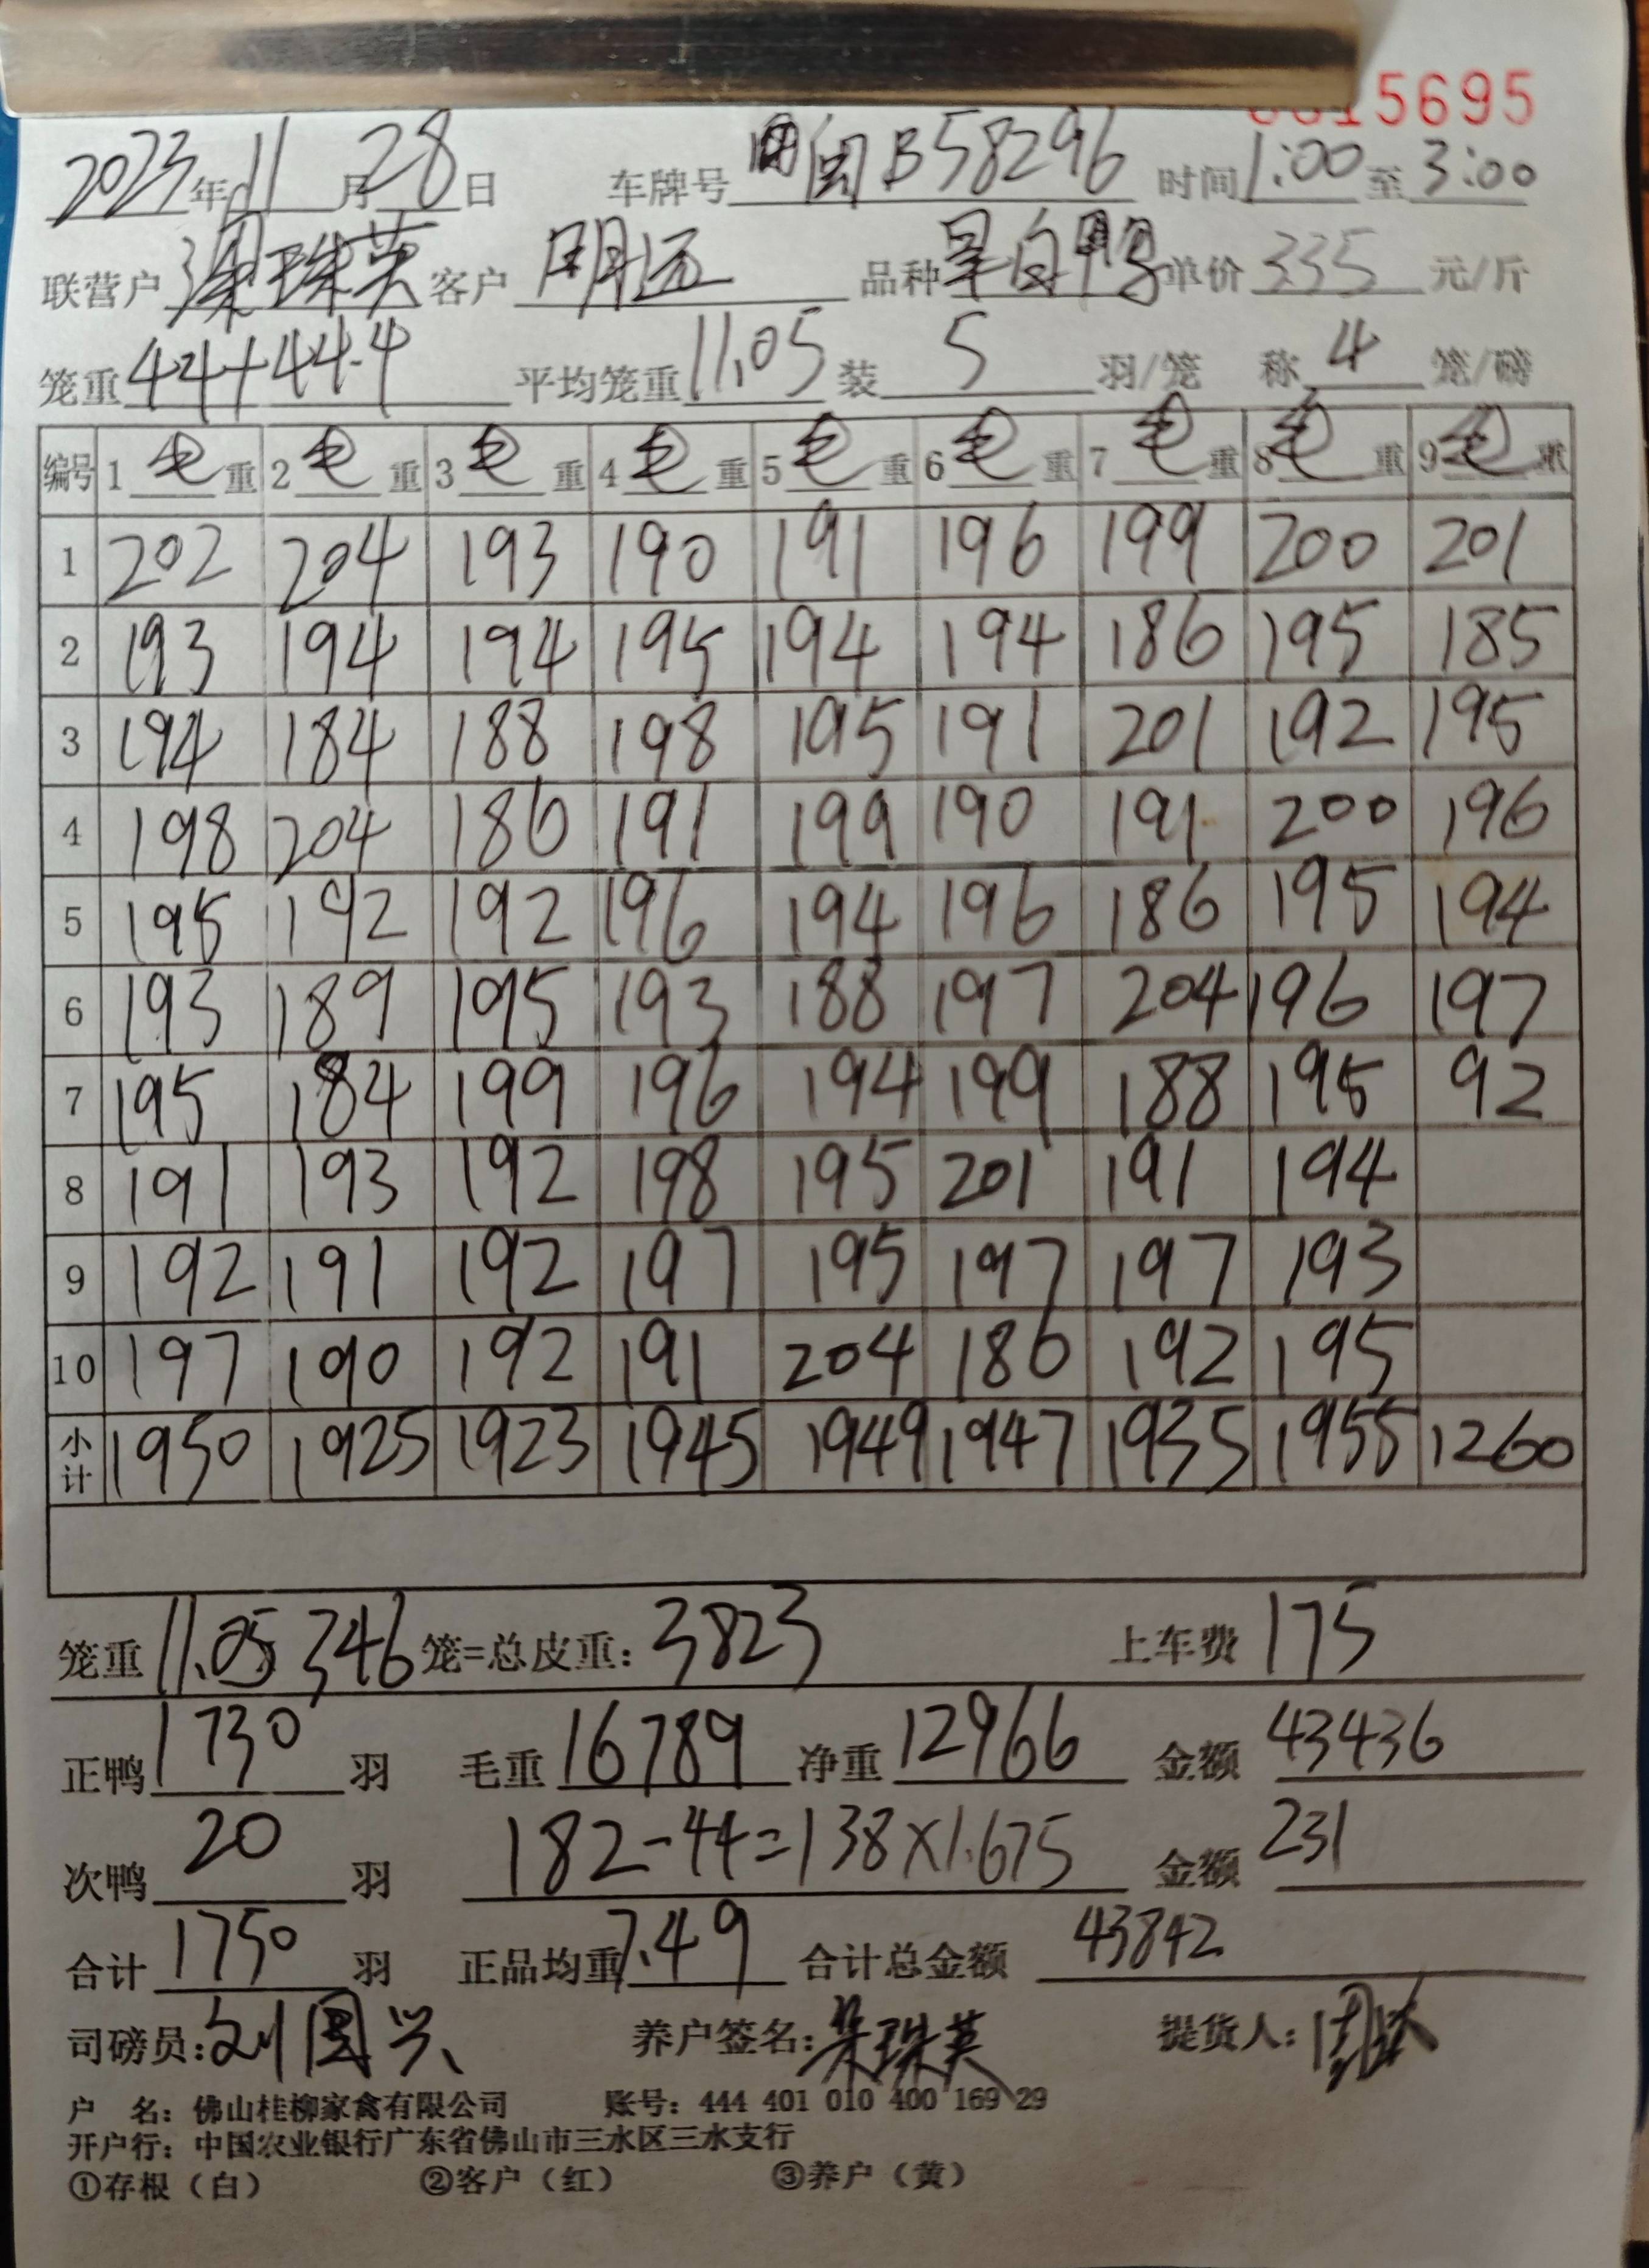 15695
2023年11月28日 车牌号 B58296 时间1:00至3:00
联营户 梁珠英 客户 明远 品种 白鸭 单价 335 元/斤
笼重 44+44.4 平均笼重 11.05 装 5 羽/笼 称 4 笼/磅
编号 1 毛 重 2 毛 重 3 毛 重 4 毛 重 5 毛 重 6 毛 重 7 毛 重 8 毛 重 9 毛 重
1 202 204 193 190 191 196 199 200 201
2 193 194 194 195 194 194 186 195 185
3 194 184 188 198 195 191 201 192 195
4 198 204 186 191 199 190 191 200 196
5 195 192 192 196 194 196 186 195 194
6 193 189 195 193 188 197 204 196 197
7 195 184 199 196 194 199 188 195 92
8 191 193 192 198 195 201 191 194
9 192 191 192 197 195 197 197 193
10 197 190 192 191 204 186 192 195
小计 1950 1925 1923 1945 1949 1947 1935 1955 1260
笼重 11.05 346 笼=总皮重: 3823 上车费 175
正鸭 1730 羽 毛重 16789 净重 12966 金额 43436
次鸭 20 羽 182-44=138×1.675 金额 231
合计 1750 羽 正品均重 7.49 合计总金额 43842
司磅员: 刘国兴 养户签名: 梁珠英 提货人:
户 名: 佛山桂柳家禽有限公司 账号: 444 401 010 400 169 29
开户行: 中国农业银行广东省佛山市三水区三水支行
①存根（白） ②客户（红） ③养户（黄）